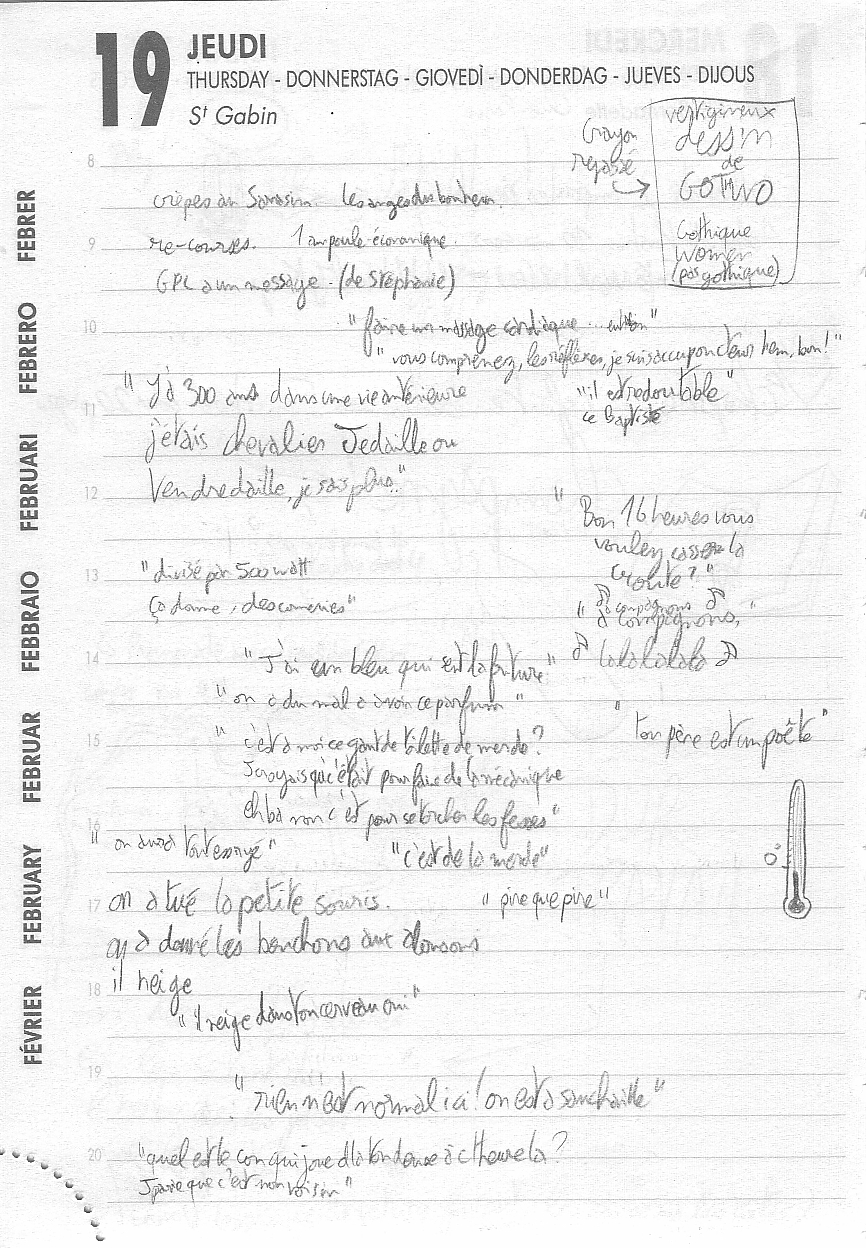 19 JEUDI
THURSDAY - DONNERSTAG - GIOVEDÌ - DONDERDAG - JUEVES - DIJOUS
St Gabin
vertigineux
dessin
de
GOTHWO
Gothique
women
(pas gothique)
Crayon
repassé
8
crèpes au Sarasin les anges du bonheur.
9
re-courses. 1 ampoule économique.
GPL a un message. (de Stéphanie)
10
"faire un massage cardiaque ...
"vous comprenez, les réflèxes, je suis accuponcteur hein, bon!"
"Y'a 300 ans dans une vie antérieure
"il est redoutable"
11
ce Baptiste
j'étais chevalier Jedaille ou
Vendredaille, je sais plus."
12
"Bon 16 heures vous
voulez casser la
croute?"
13
"divisé par 500 watt
ça donne, des conneries"
"à compagnons
à compagnons,"
14
"J'ai un bleu qui sent la friture"
lalalalala
"on a du mal à avoir ce parfum"
15
"ton père est un poête"
"c'est à moi ce gant de toilette de merde?
Jcroyais qu'c'était pour faire de la mécanique
eh ba non c'est pour se torcher les fesses"
16
"on aura tout essayé"
"c'est de la merde"
0°
17
on a tué la petite souris.
"pire que pire"
on a donné les bouchons aux
18
il neige
"il neige dans ton cerveau oui"
19
"rien n'est normal ici! on est à
20
"quel est le con qui joue d'la tondeuse à c't'heure là?
J'parie que c'est mon voisin"
FÉVRIER FEBRUARY FEBRUAR FEBBRAIO FEBRUARI FEBRERO FEBRER